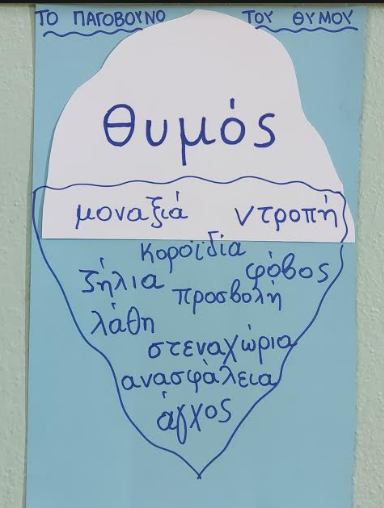 ΤΟ ΠΑΓΟΒΟΥΝΟ ΤΟΥ ΘΥΜΟΥ
θυμός
μοναξιά ντροπή
κοροϊδία
ζήλια φόβος
προσβολή
λάθη
στεναχώρια
ανασφάλεια
άγχος